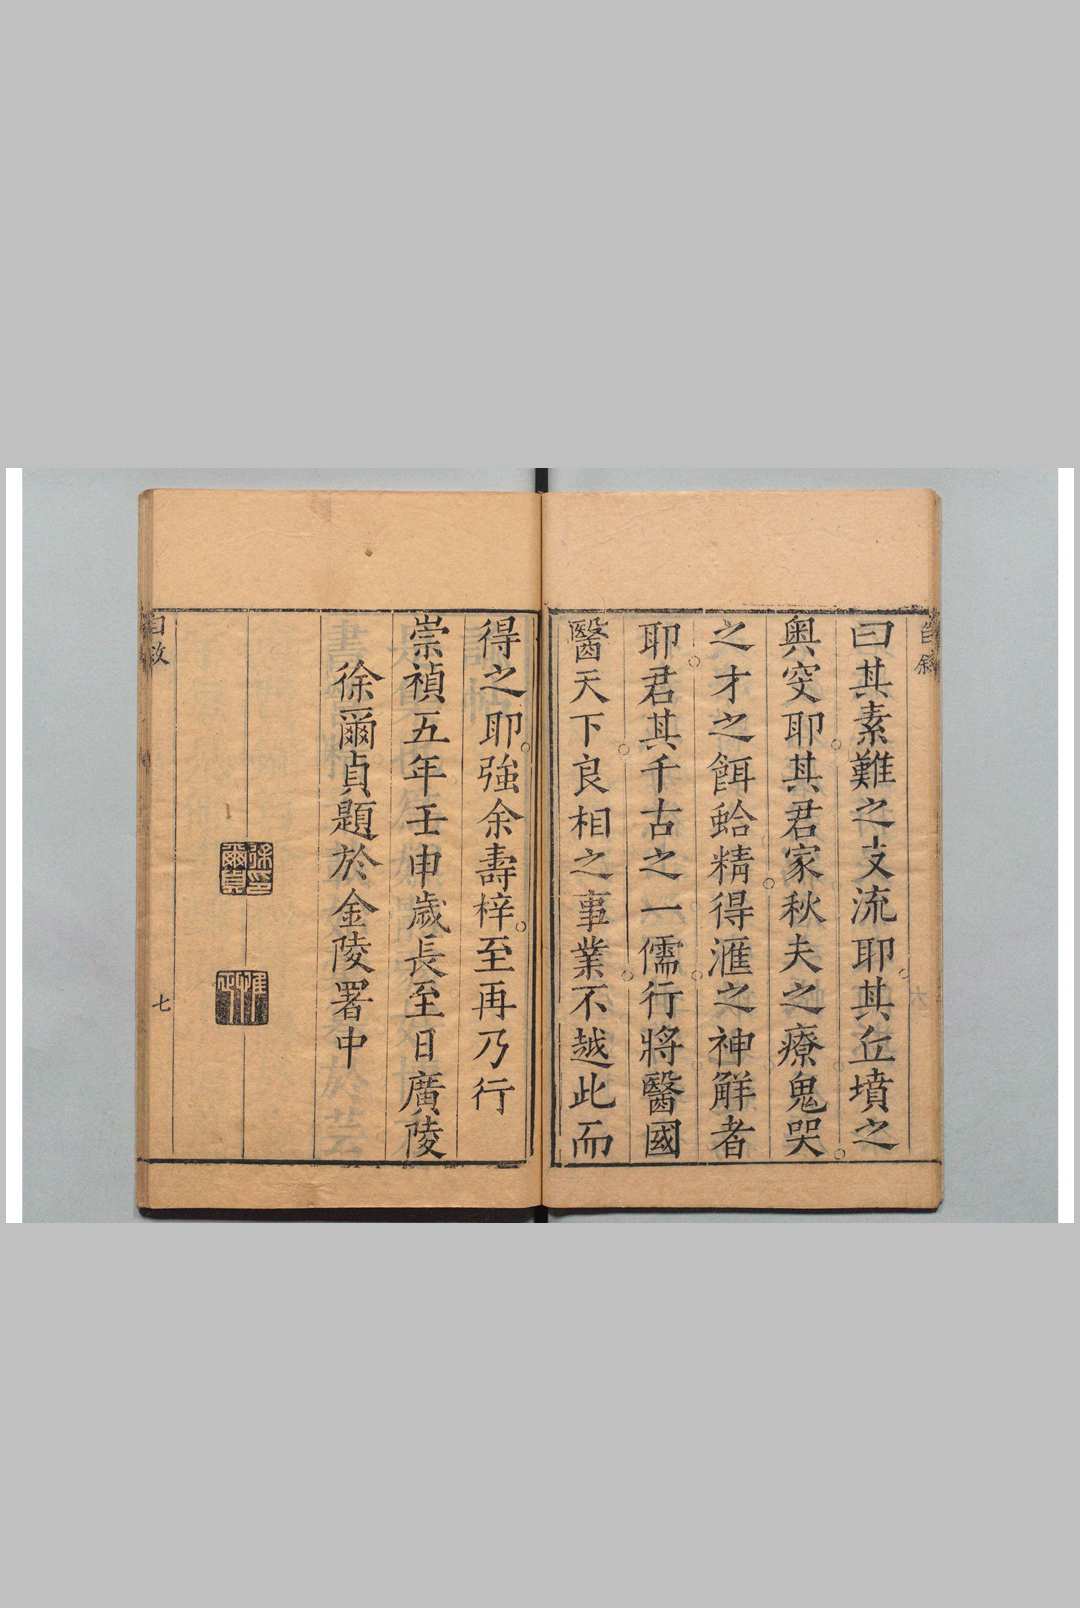 自敘
曰其素難之支流耶其丘墳之
奧突耶其君家秋夫之療鬼哭
之才之餌蛤精得滙之神解者
耶君其千古之一儒行將醫國
醫天下良相之事業不越此而
六
得之耶強余壽梓至再乃行
崇禎五年壬申歲長至日廣陵
徐爾貞題於金陵署中
徐印
爾貞
自敘
七